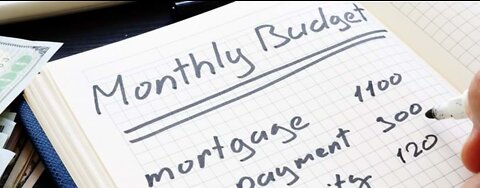 Monthly Budget
mortgage 1100
payment 300
120